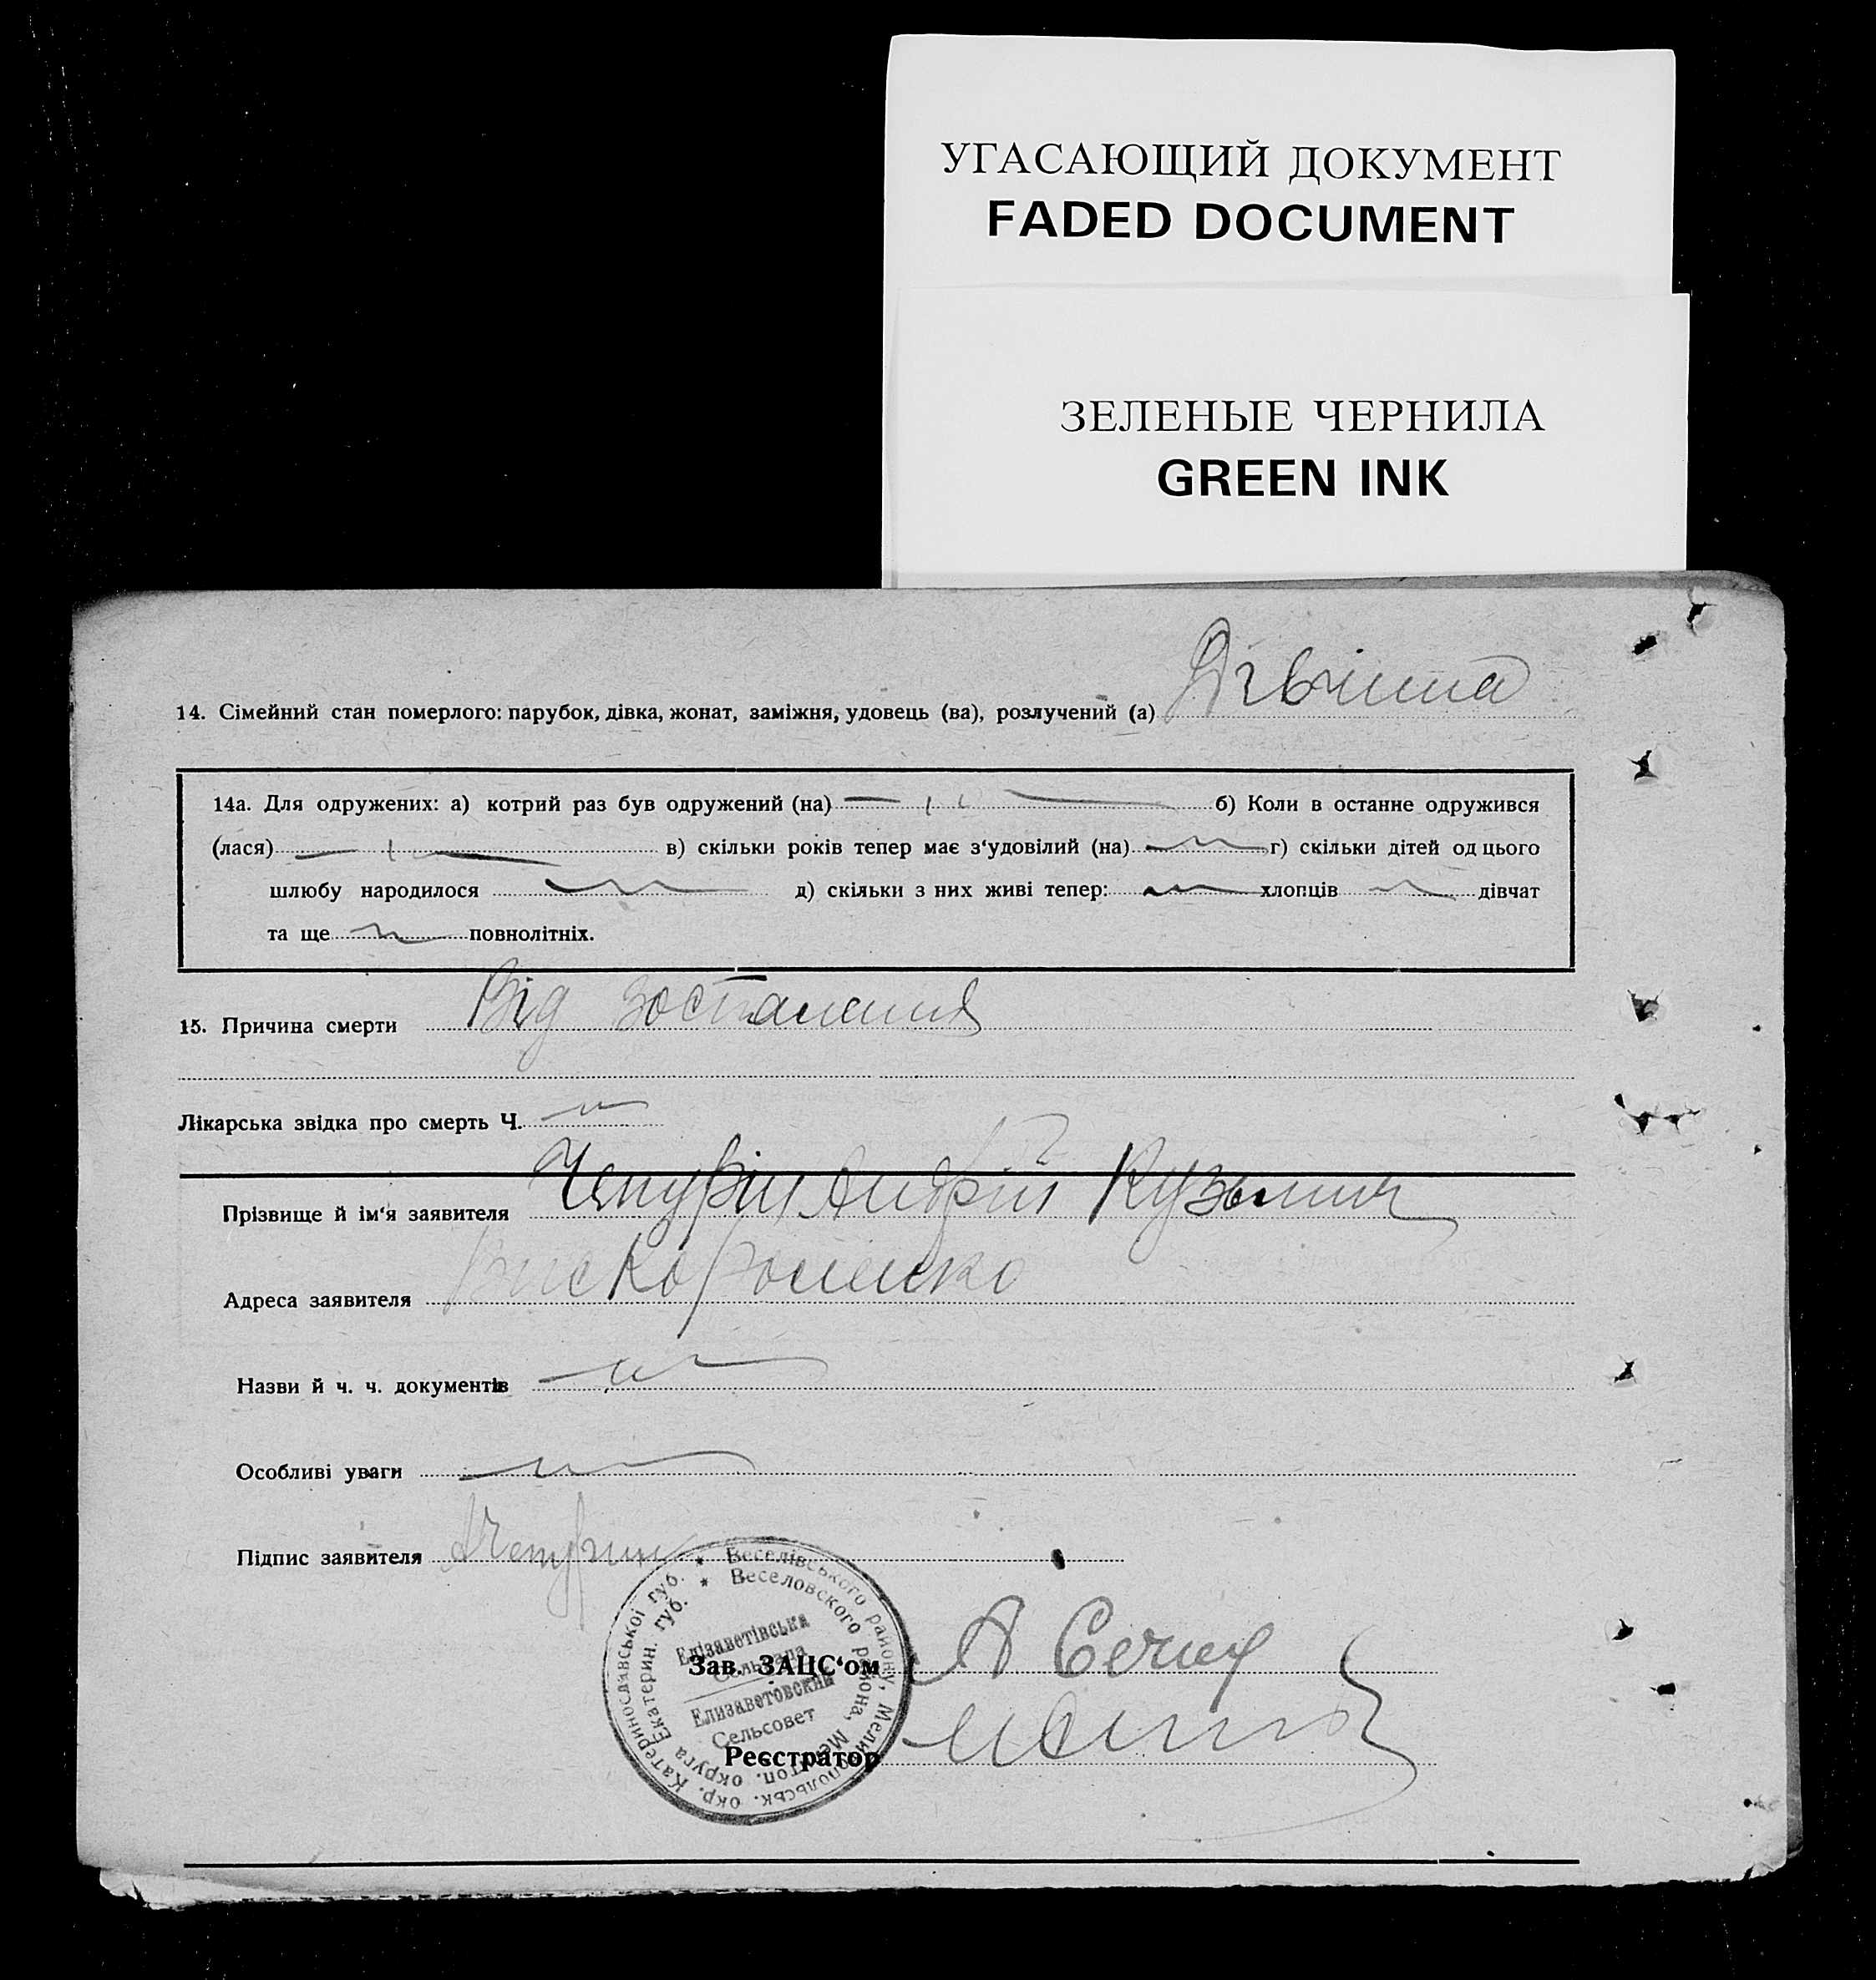 УГАСАЮЩИЙ ДОКУМЕНТ
FADED DOCUMENT
ЗЕЛЕНЫЕ ЧЕРНИЛА
GREEN INK
14. Сімейний стан померлого: парубок, дівка, жонат, заміжня, удовець (ва), розлучений (а)
14а. Для одружених: а) котрий раз був одружений (на) б) Коли в останне одружився
(лася) в) скільки років тепер має з‘удовілий (на) г) скільки дітей од цього
шлюбу народилося д) скільки з них живі тепер: хлопців дівчат
та ще повнолітніх.
15. Причина смерти Від
Лікарська звідка про смерть Ч.
Прізвище й ім‘я заявителя Чепурін Андрій Кузьмич
Адреса заявителя
Назви й ч. ч. документів
Особливі уваги
Підпис заявителя АЧепурин
Веселівського району, Мелитопольськ. окр. Катеринославської губ.
Веселовского района, Мелитоп. округа Екатерин. губ.
Елізаветівська
Сельрада
Елизаветовский
Сельсовет
Зав. ЗАЦС‘ом
Реєстратор